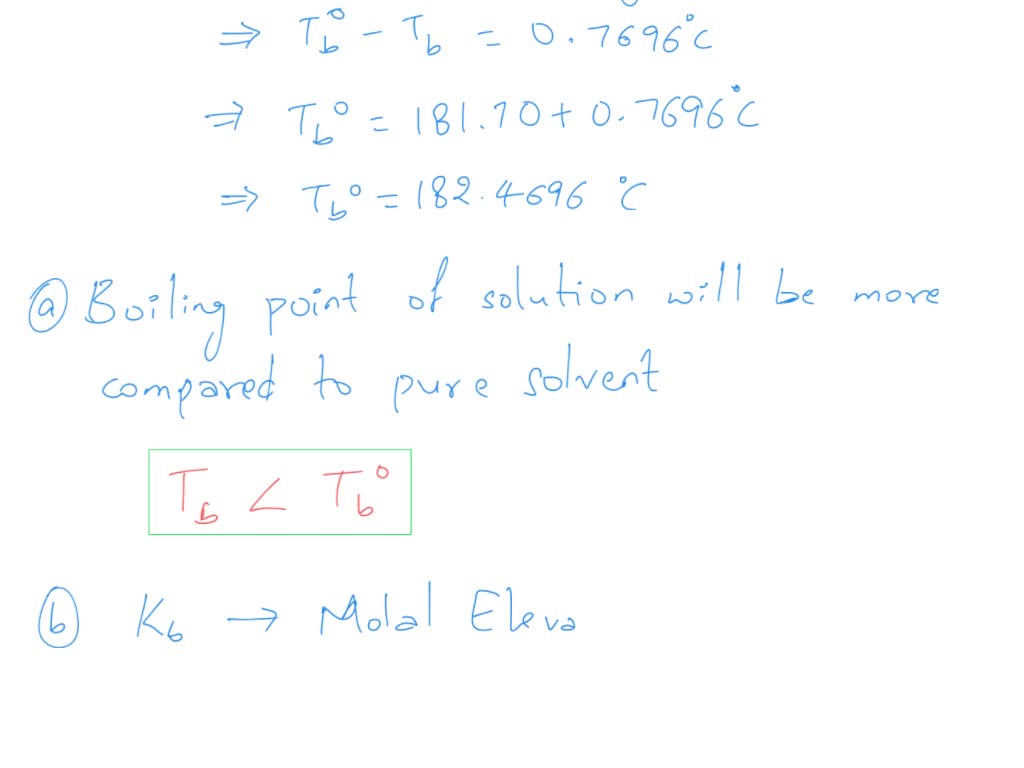 ⇒ T_b° - T_b = 0.7696°C
⇒ T_b° = 181.70 + 0.7696°C
⇒ T_b° = 182.4696 °C
ⓐ Boiling point of solution will be more
compared to pure solvent
T_b < T_b°
ⓑ K_b → Molal Eleva